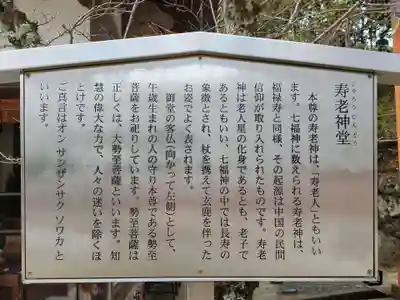 寿老神堂
じゅろうじんどう
本尊の寿老神は、「寿老人」ともいい
ます。七福神に数えられる寿老神は、
福禄寿と同様、その起源は中国の民間
信仰が取り入れられたものです。寿老
神は老人星の化身であるとも、老子で
あるともいい、七福神の中では長寿の
象徴とされ、杖を携えて玄鹿を伴った
お姿でよく表されます。
御堂の客仏（向かって左側）として、
午歳生まれの人の守り本尊である勢至
菩薩をお祀りしています。勢至菩薩は
正しくは、大勢至菩薩といいます。知
慧の偉大な力で、人々の迷いを除くほ
とけです。
ご真言はオン サンザンサク ソワカ と
いいます。